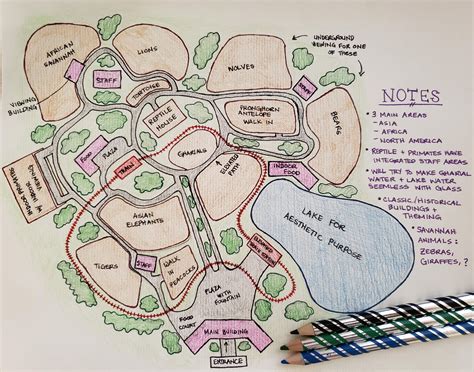 AFRICAN
SAVANNAH
LIONS
UNDERGROUND
VIEWING FOR ONE
OF THESE
WOLVES
STAFF
TORTOISE
STAFF
VIEWING
BUILDING
REPTILE
HOUSE
PRONGHORN
ANTELOPE
WALK IN
BEARS
FOOD
PLAZA
TRAIN
GHARIALS
ELEVATED
PATH
INDOOR
FOOD
PRIMATES
INDOOR
VIEWING
ASIAN
ELEPHANTS
TIGERS
STAFF
WALK
IN
PEACOCKS
LAKE FOR
AESTHETIC PURPOSE
PLAZA
WITH
FOUNTAIN
FOOD
COURT
MAIN BUILDING
ENTRANCE
NOTES
* 3 MAIN AREAS
- ASIA
- AFRICA
- NORTH AMERICA
* REPTILE + PRIMATES HAVE
INTEGRATED STAFF AREAS
* WILL TRY TO MAKE GHARIAL
WATER + LAKE WATER
SEEMLESS WITH GLASS
* CLASSIC/HISTORICAL
BUILDINGS +
THEMING
* SAVANNAH
ANIMALS:
ZEBRAS,
GIRAFFES, ?